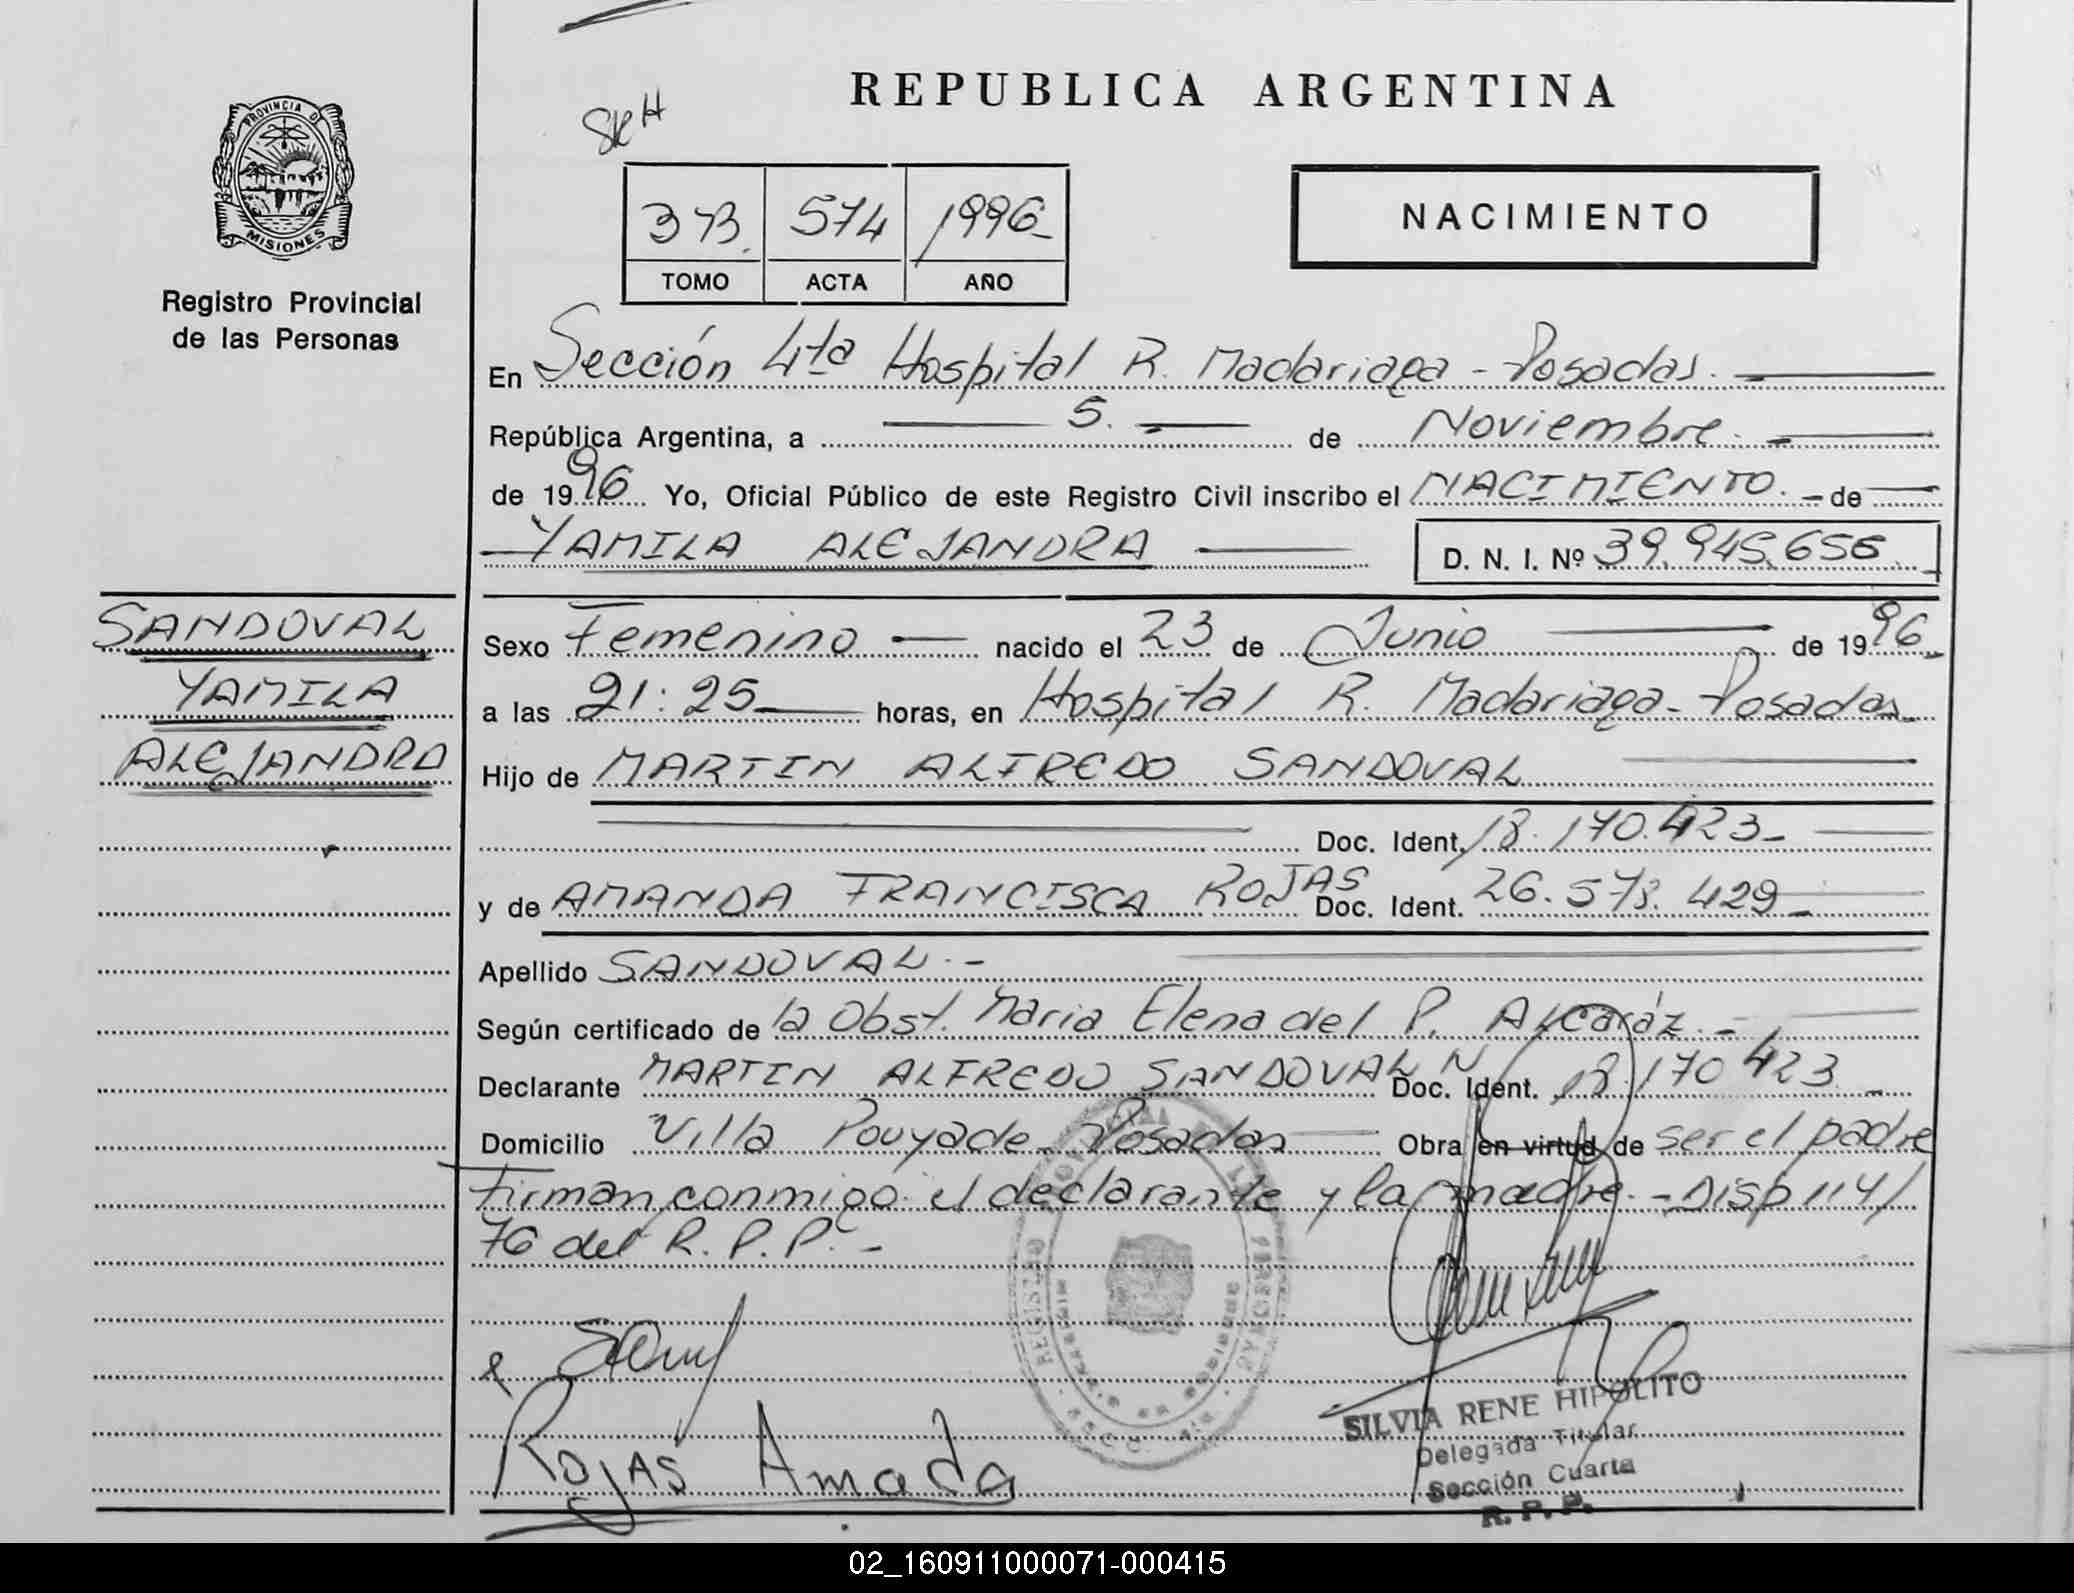 REPUBLICA ARGENTINA
PROVINCIA D
MISIONES
Registro Provincial
de las Personas
373. 574 1996-
TOMO ACTA AÑO
NACIMIENTO
En Sección 4ta Hospital R. Madariaga - Posadas.
República Argentina, a 5. de Noviembre.
de 1996 Yo, Oficial Público de este Registro Civil inscribo el NACIMIENTO. de
YAMILA ALEJANDRA D. N. I. Nº 39.945.656
SANDOVAL
YAMILA
ALEJANDRA
Sexo Femenino nacido el 23 de Junio de 1996
a las 21:25 horas, en Hospital R. Madariaga - Posadas
Hijo de MARTIN ALFREDO SANDOVAL
Doc. Ident. 18.170.423-
y de AMANDA FRANCISCA ROJAS Doc. Ident. 26.573.429-
Apellido SANDOVAL.-
Según certificado de la Obst. Maria Elena del P. Alcaráz.-
Declarante MARTIN ALFREDO SANDOVAL Doc. Ident. 18.170.423
Domicilio Villa Pouyade - Posadas Obra en virtud de ser el padre
Firman conmigo el declarante y la madre.- Disp 114/
76 del R. P. P.-
Rojas Amada
SILVIA RENE HIPOLITO
Delegada Titular
Sección Cuarta
R. P. P.
02_160911000071-000415